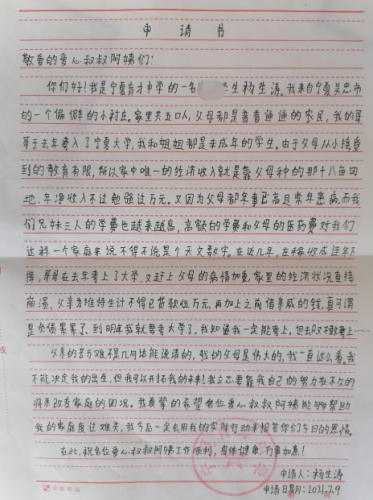 申请书
敬爱的爱心叔叔阿姨们:
你们好!我是宁夏育才中学的一名 生杨生涛。我来自宁夏吴忠市
的一个偏僻的小村庄。家里共五口人,父母都是普普通通的农民,我的哥
哥于去年考入了宁夏大学,我和姐姐都是未成年的学生。由于父母从小接受
到的教育有限,所以家中唯一的经济收入就是靠父母种的那十八亩田
地,年净收入不过勉强过万元。又因为父母都年事已高且常年患病,而我
们兄妹三人的学费也越来越高,高额的学费和父母的医药费对我们
这样一个家庭来说不得不说是个天文数字。在近几年,庄稼收成连年下
降,哥哥在去年考上了大学,又赶上父母的病情加重,家里的经济状况直接
崩溃,父亲为维持生计不得已贷款 万元,再加上之前借亲戚的钱,真可谓
是负债累累了。到明年我就要考大学了,我知道我一定能考上,但却又不敢考上…
父亲的苦与难不是几句话能说清的,我的父母是伟大的,我一直这么看,我
不能决定我的出生,但我可以开拓我的未来!我立志要靠我自己的努力在不久的
将来改变家庭的困况。我真挚的希望各位爱心叔叔阿姨能够帮助
我的家庭度过难关,我今后一定会用我的实际行动来报答你们今日的恩情。
在此,祝各位爱心叔叔阿姨工作顺利,身体健康,万事如意!
申请人:杨生涛
申请日期:2021.7.9